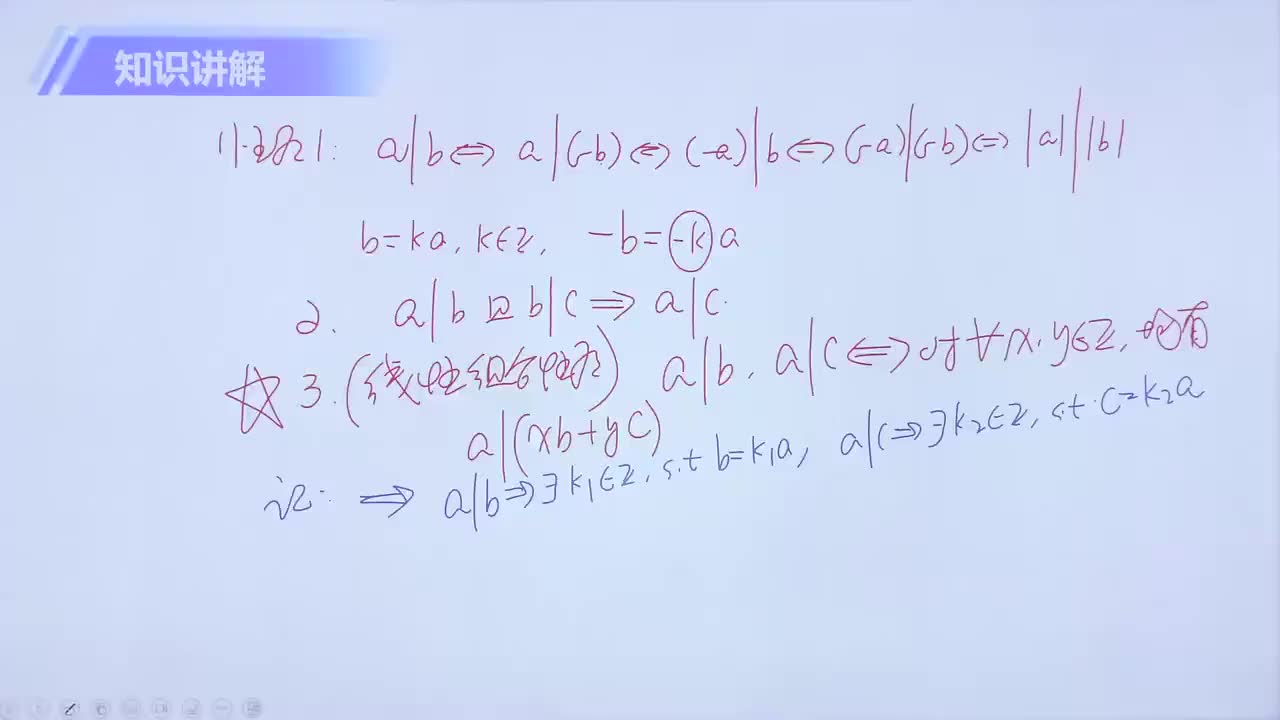 知识讲解
性质1: a|b⇔ a|(-b)⇔(-a)|b⇔(-a)|(-b)⇔|a||b|
b=ka, k∈Z, -b=(-k)a
2. a|b且b|c⇒a|c.
☆3.(线性组合性质) a|b, a|c⇔对∀x,y∈Z,均有
a|(xb+yc)
证: ⇒ a|b⇒∃k₁∈Z, s.t b=k₁a, a|c⇒∃k₂∈Z, s.t. c=k₂a